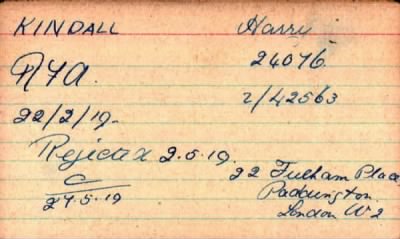 KINDALL Harry
RFA. 24076
2/42563
22/2/19.
Rejected 2.5.19.
22 Fulham Place
C Paddington.
27.5.19 London W2